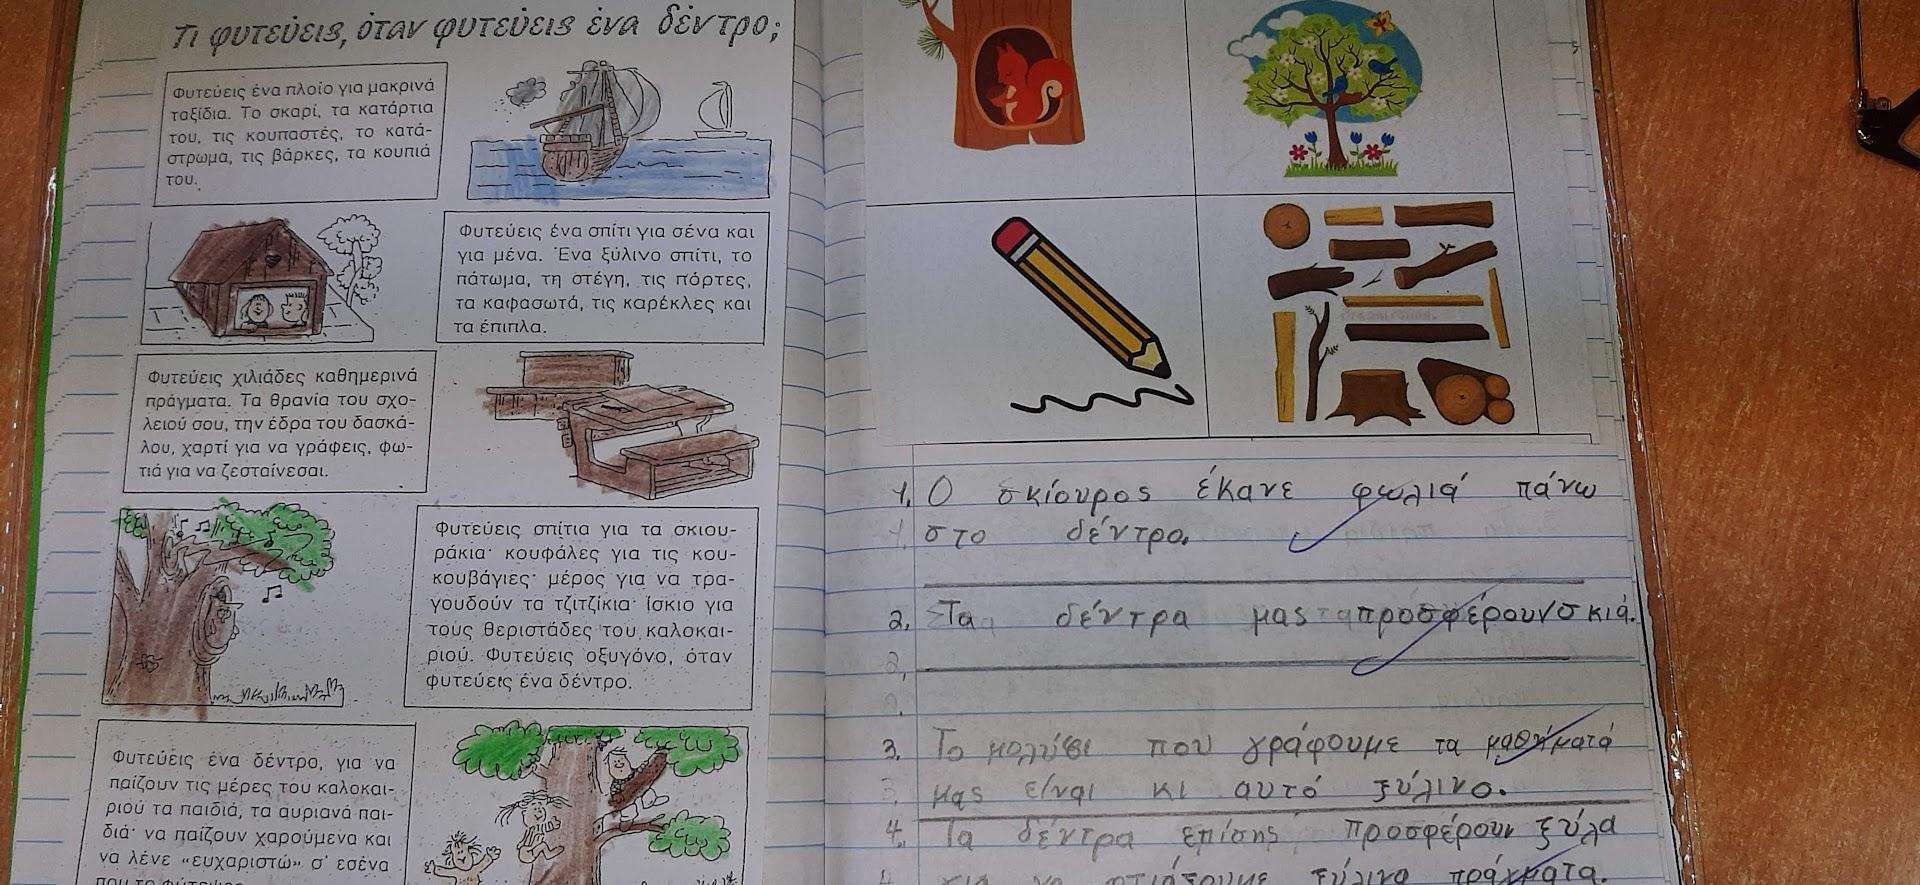 Τι φυτεύεις, όταν φυτεύεις ένα δέντρο;
Φυτεύεις ένα πλοίο για μακρινά
ταξίδια. Το σκαρί, τα κατάρτια
του, τις κουπαστές, το κατά-
στρωμα, τις βάρκες, τα κουπιά
του.
Φυτεύεις ένα σπίτι για σένα και
για μένα. Ένα ξύλινο σπίτι, το
πάτωμα, τη στέγη, τις πόρτες,
τα καφασωτά, τις καρέκλες και
τα έπιπλα.
Φυτεύεις χιλιάδες καθημερινά
πράγματα. Τα θρανία του σχο-
λειού σου, την έδρα του δασκά-
λου, χαρτί για να γράφεις, φω-
τιά για να ζεσταίνεσαι.
Φυτεύεις σπίτια για τα σκιου-
ράκια· κουφάλες για τις κου-
κουβάγιες· μέρος για να τρα-
γουδούν τα τζιτζίκια· ίσκιο για
τους θεριστάδες του καλοκαι-
ριού. Φυτεύεις οξυγόνο, όταν
φυτεύεις ένα δέντρο.
Φυτεύεις ένα δέντρο, για να
παίζουν τις μέρες του καλοκαι-
ριού τα παιδιά, τα αυριανά παι-
διά· να παίζουν χαρούμενα και
να λένε «ευχαριστώ» σ' εσένα
που το φύτεψες
1. Ο σκίουρος έκανε φωλιά πάνω
στο δέντρο.
2. Τα δέντρα μας προσφέρουν σκιά.
3. Το μολύβι που γράφουμε τα μαθήματά
μας είναι κι αυτό ξύλινο.
4. Τα δέντρα επίσης προσφέρουν ξύλα
για να φτιάξουμε ξύλινα πράγματα.